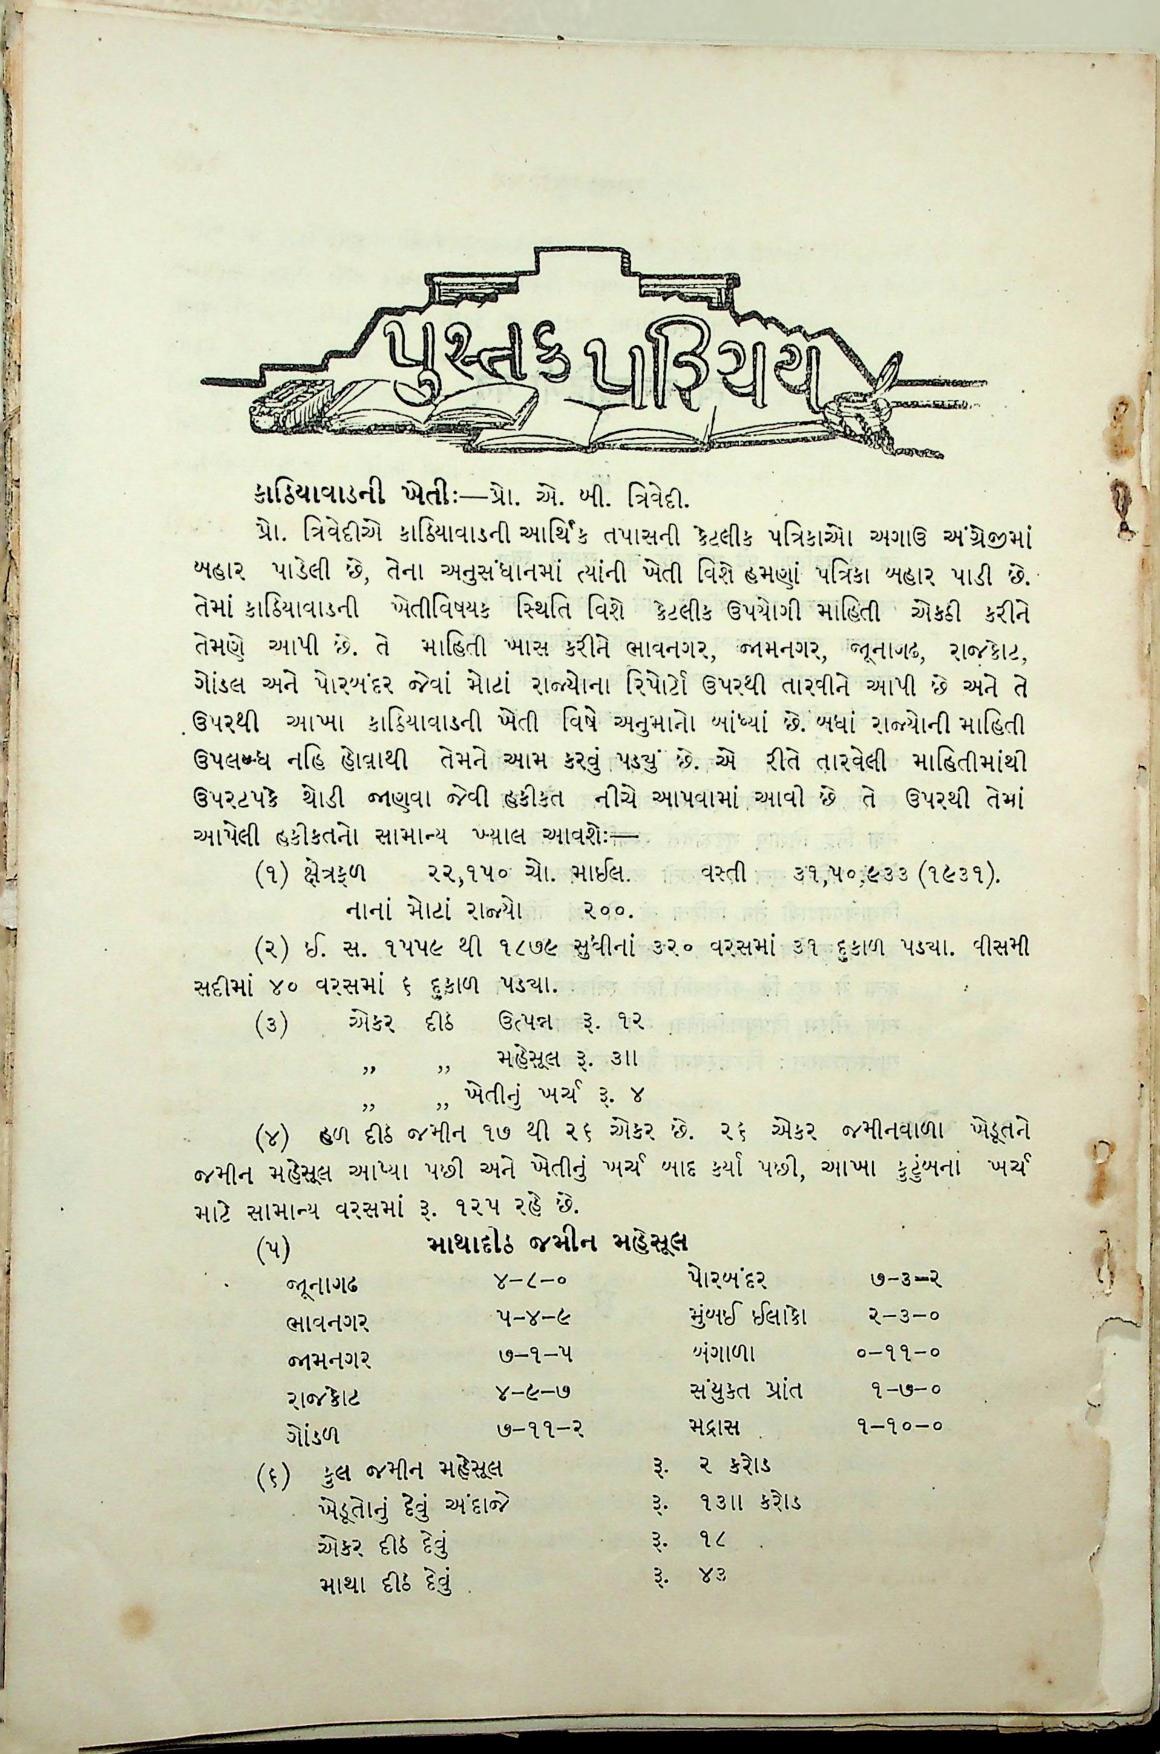 પુસ્તક પરિચય
કાઠિયાવાડની ખેતીઃ—પ્રો. એ. બી. ત્રિવેદી.
પ્રો. ત્રિવેદીએ કાઠિયાવાડની આર્થિક તપાસની કેટલીક પત્રિકાઓ અગાઉ અંગ્રેજીમાં
બહાર પાડેલી છે, તેના અનુસંધાનમાં ત્યાંની ખેતી વિશે હમણાં પત્રિકા બહાર પાડી છે.
તેમાં કાઠિયાવાડની ખેતીવિષયક સ્થિતિ વિશે કેટલીક ઉપયોગી માહિતી એકઠી કરીને
તેમણે આપી છે. તે માહિતી ખાસ કરીને ભાવનગર, જામનગર, જૂનાગઢ, રાજકોટ,
ગોંડલ અને પોરબંદર જેવાં મોટાં રાજ્યોના રિપોર્ટો ઉપરથી તારવીને આપી છે અને તે
ઉપરથી આખા કાઠિયાવાડની ખેતી વિષે અનુમાનો બાંધ્યાં છે. બધાં રાજ્યોની માહિતી
ઉપલબ્ધ નહિ હોવાથી તેમને આમ કરવું પડ્યું છે. એ રીતે તારવેલી માહિતીમાંથી
ઉપરટપકે થોડી જાણવા જેવી હકીકત નીચે આપવામાં આવી છે તે ઉપરથી તેમાં
આપેલી હકીકતનો સામાન્ય ખ્યાલ આવશેઃ—
(૧) ક્ષેત્રફળ ૨૨,૧૫૦ ચો. માઈલ. વસ્તી ૩૧,૫૦,૯૩૩ (૧૯૩૧).
નાનાં મોટાં રાજ્યો ૨૦૦.
(૨) ઈ. સ. ૧૫૫૯ થી ૧૮૭૯ સુધીનાં ૩૨૦ વરસમાં ૩૧ દુકાળ પડ્યા. વીસમી
સદીમાં ૪૦ વરસમાં ૬ દુકાળ પડ્યા.
(૩) એકર દીઠ ઉત્પન્ન રૂ. ૧૨
,, ,, મહેસૂલ રૂ. ૩ાા
,, ,, ખેતીનું ખર્ચ રૂ. ૪
(૪) હળ દીઠ જમીન ૧૭ થી ૨૬ એકર છે. ૨૬ એકર જમીનવાળા ખેડૂતને
જમીન મહેસૂલ આપ્યા પછી અને ખેતીનું ખર્ચ બાદ કર્યા પછી, આખા કુટુંબના ખર્ચ
માટે સામાન્ય વરસમાં રૂ. ૧૨૫ રહે છે.
(૫) માથાદીઠ જમીન મહેસૂલ
જૂનાગઢ ૪–૮–૦ પોરબંદર ૭–૩–૨
ભાવનગર ૫–૪–૯ મુંબઈ ઈલાકો ૨–૩–૦
જામનગર ૭–૧–૫ બંગાળા ૦–૧૧–૦
રાજકોટ ૪–૯–૭ સંયુક્ત પ્રાંત ૧–૭–૦
ગોંડળ ૭–૧૧–૨ મદ્રાસ ૧–૧૦–૦
(૬) કુલ જમીન મહેસૂલ રૂ. ૨ કરોડ
ખેડૂતોનું દેવું અંદાજે રૂ. ૧૩ાા કરોડ
એકર દીઠ દેવું રૂ. ૧૮
માથા દીઠ દેવું રૂ. ૪૩